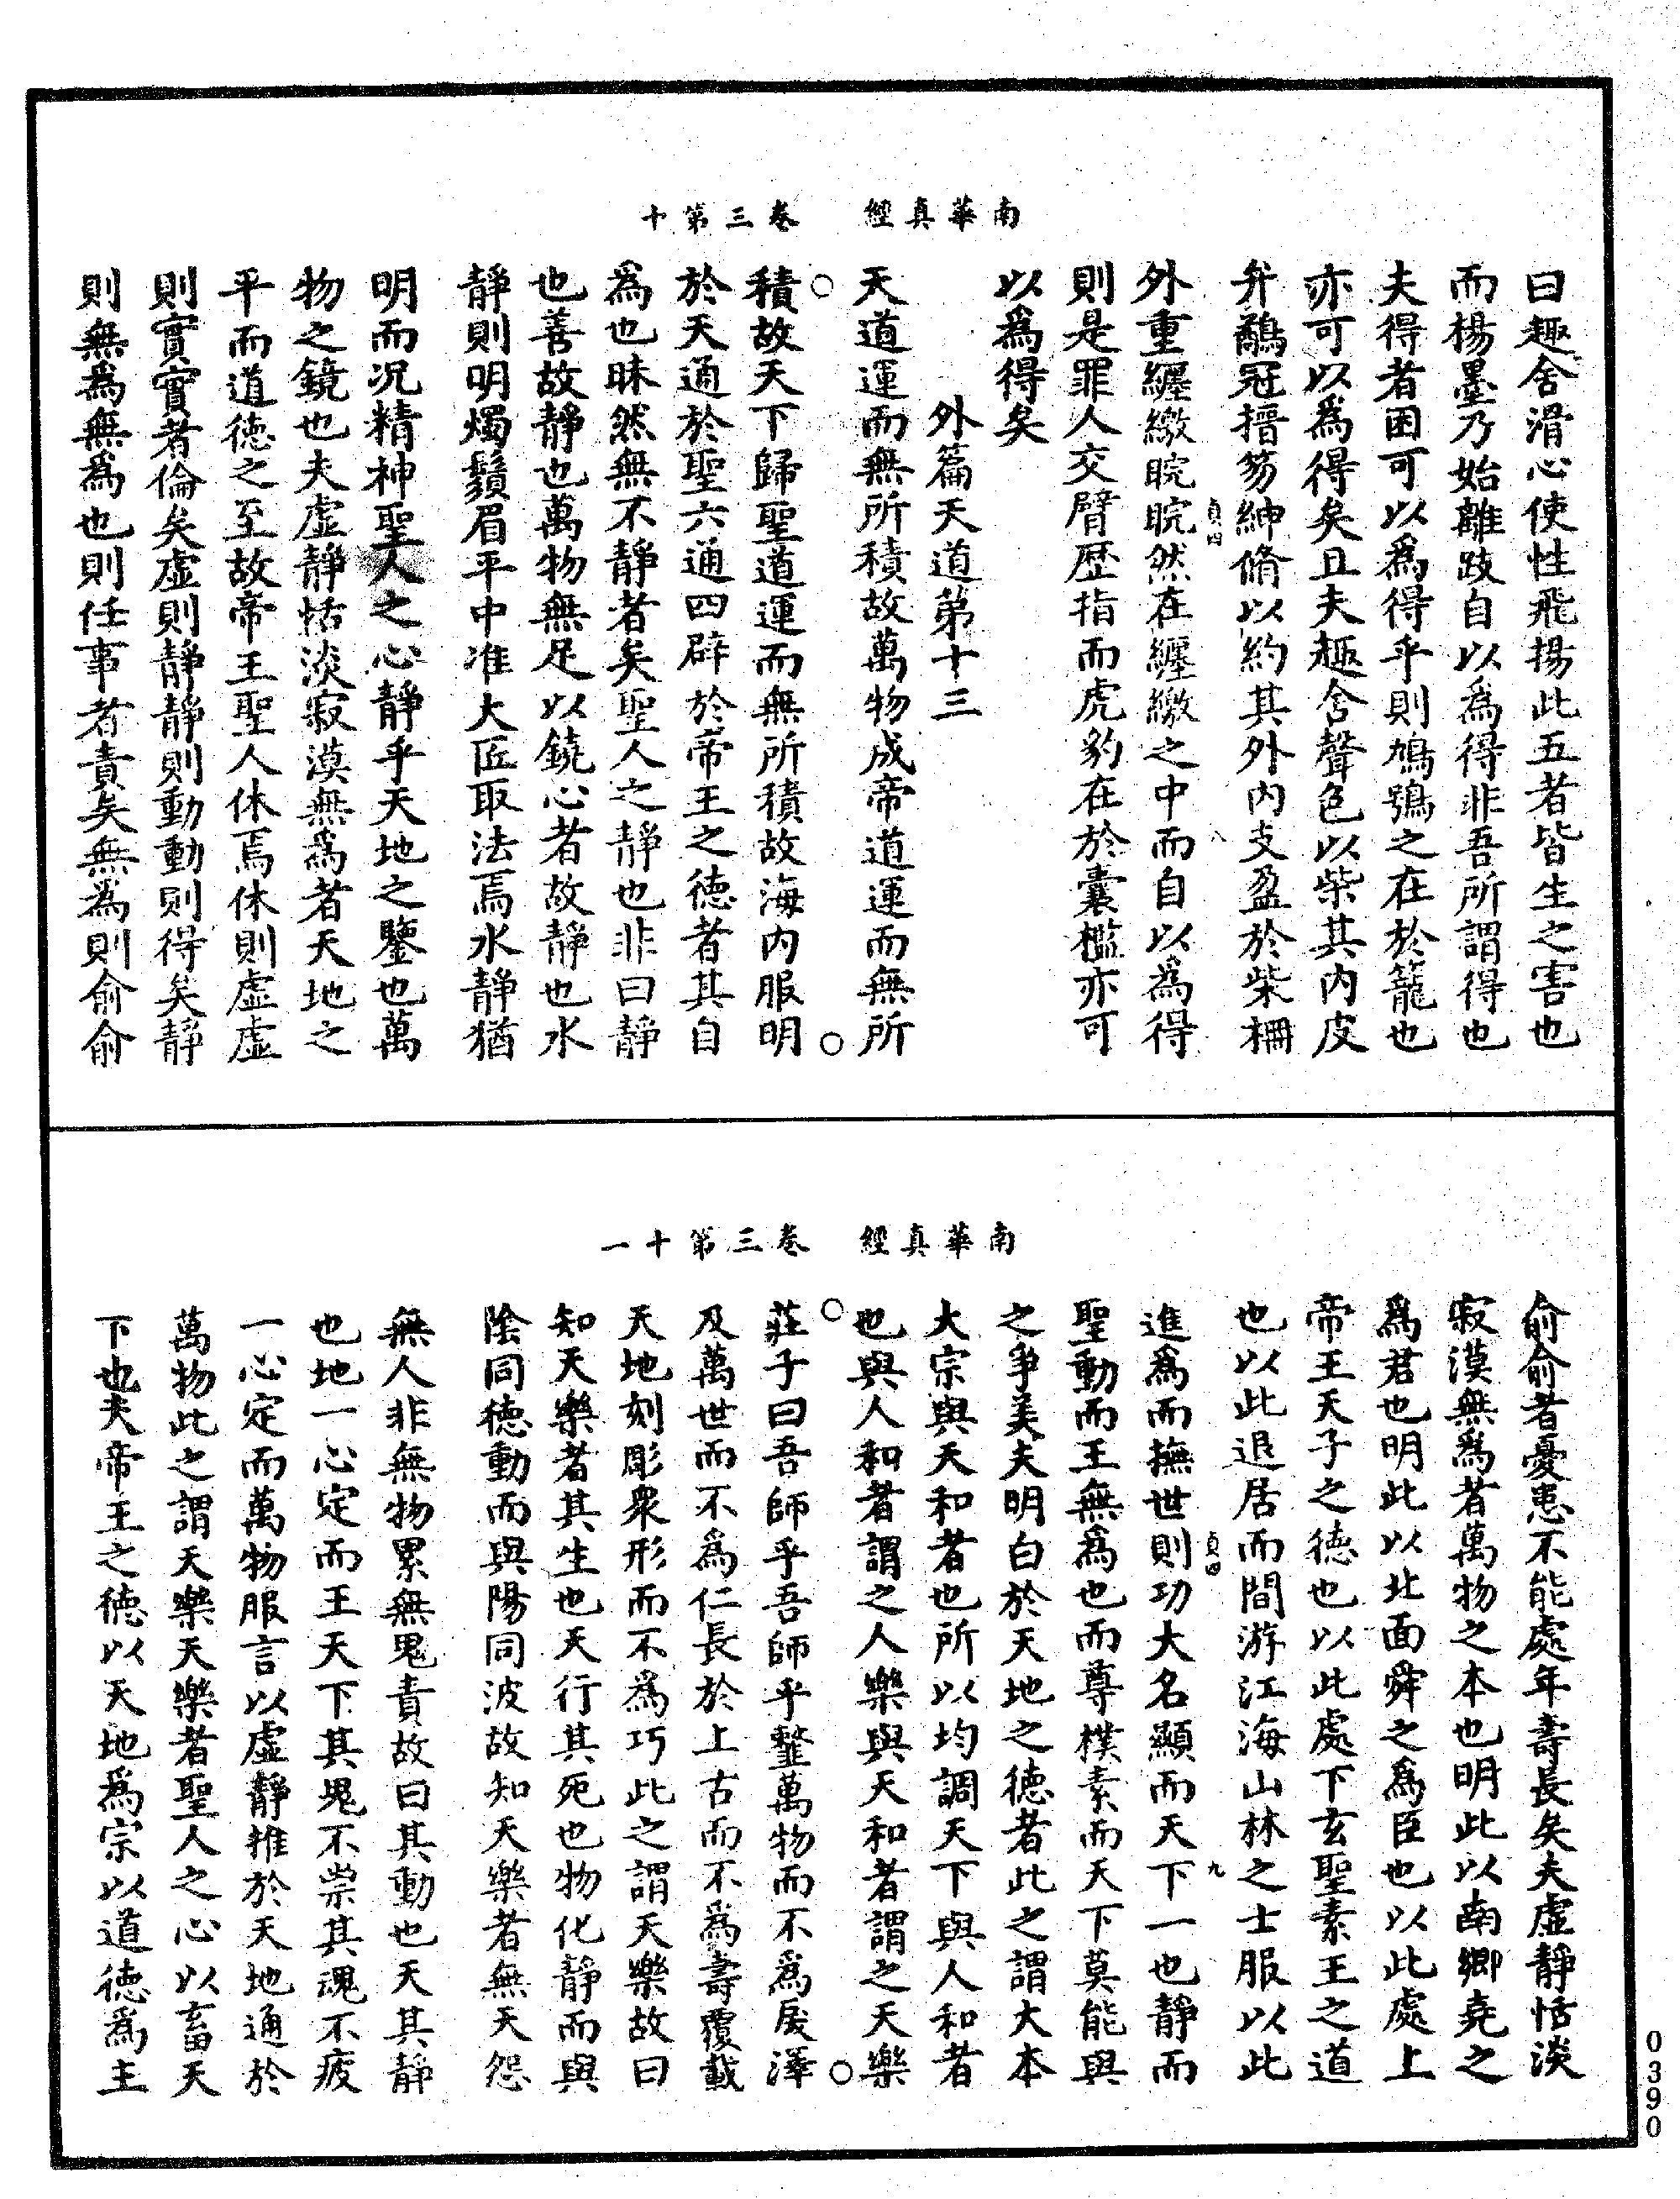 南華真經　卷三第十
曰趣舍滑心使性飛揚此五者皆生之害也
而楊墨乃始離跂自以爲得非吾所謂得也
夫得者困可以爲得乎則鳩鴞之在於籠也
亦可以爲得矣且夫趣舍聲色以柴其内皮
弁鷸冠搢笏紳脩以約其外内支盈於柴柵
貞四　八
外重纆繳睆睆然在纆繳之中而自以爲得
則是罪人交臂歷指而虎豹在於囊檻亦可
以爲得矣
外篇天道第十三
天道運而無所積故萬物成帝道運而無所
積故天下歸聖道運而無所積故海内服明
於天通於聖六通四辟於帝王之德者其自
爲也昧然無不靜者矣聖人之靜也非曰靜
也善故靜也萬物無足以鐃心者故靜也水
靜則明燭鬚眉平中准大匠取法焉水靜猶
明而况精神聖人之心靜乎天地之鑒也萬
物之鏡也夫虚靜恬淡寂漠無爲者天地之
平而道德之至故帝王聖人休焉休則虚虚
則實實者倫矣虚則靜靜則動動則得矣靜
則無爲無爲也則任事者責矣無爲則俞俞
南華真經　卷三第十一
俞俞者憂患不能處年壽長矣夫虚靜恬淡
寂漠無爲者萬物之本也明此以南鄉堯之
爲君也明此以北面舜之爲臣也以此處上
帝王天子之德也以此處下玄聖素王之道
也以此退居而間游江海山林之士服以此
貞四　九
進爲而撫世則功大名顯而天下一也靜而
聖動而王無爲也而尊樸素而天下莫能與
之爭美夫明白於天地之德者此之謂大本
大宗與天和者也所以均調天下與人和者
也與人和者謂之人樂與天和者謂之天樂
莊子曰吾師乎吾師乎䪠萬物而不爲戾澤
及萬世而不爲仁長於上古而不爲壽覆載
天地刻彫衆形而不爲巧此之謂天樂故曰
知天樂者其生也天行其死也物化靜而與
陰同德動而與陽同波故知天樂者無天怨
無人非無物累無鬼責故曰其動也天其靜
也地一心定而王天下其鬼不祟其魂不疲
一心定而萬物服言以虚靜推於天地通於
萬物此之謂天樂天樂者聖人之心以畜天
下也夫帝王之德以天地爲宗以道德爲主
0390